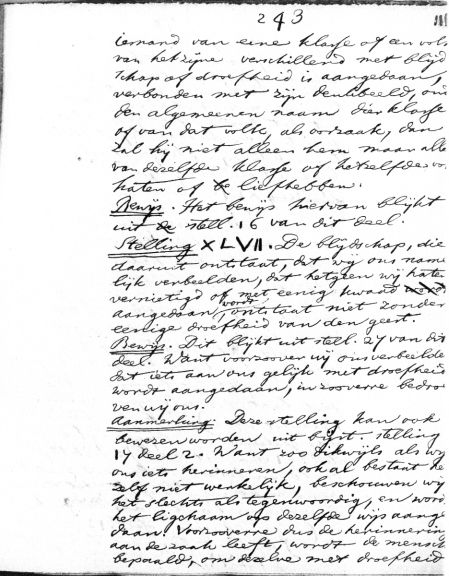 243
iemand van eene klasse of een volk
van het zijne verschillend met blijd
schap of droefheid is aangedaan,
verbonden met zijn denkbeeld, on
den algemeenen naam dier klasse
of van dat volk, als oorzaak, dan
zal hij niet alleen hem maar alle
van dezelfde klasse of hetzelfde vo
haten of te liefhebben.
Bewijs. Het bewijs hiervan blijkt
uit de stell. 16 van dit deel.
Stelling XLVII. De blijdschap, die
daaruit ontstaat, dat wij ons name
lijk verbeelden, dat hetgeen wij hate
vernietigd of met eenig kwaad
wordt
aangedaan, ontstaat niet zonder
eenige droefheid van den geest.
Bewijs. Dit blijkt uit stell. 27 van dit
deel. Want voorzoover wij ons verbeelde
dat iets aan ons gelijk met droefheid
wordt aangedaan, in zooverre bedroe
ven wij ons.
Aanmerking. Deze stelling kan ook
bewezen worden uit bijst. stelling
17 deel 2. Want zoo dikwijls als wij
ons iets herinneren, ook al bestaat he
zelf niet werkelijk, beschouwen wij
het slechts als tegenwoordig, en word
het ligchaam op dezelfde wijs aange
daan. Voorzooverre dus de herinnerin
aan de zaak leeft, wordt de mensch
bepaald, om dezelve met droefheid